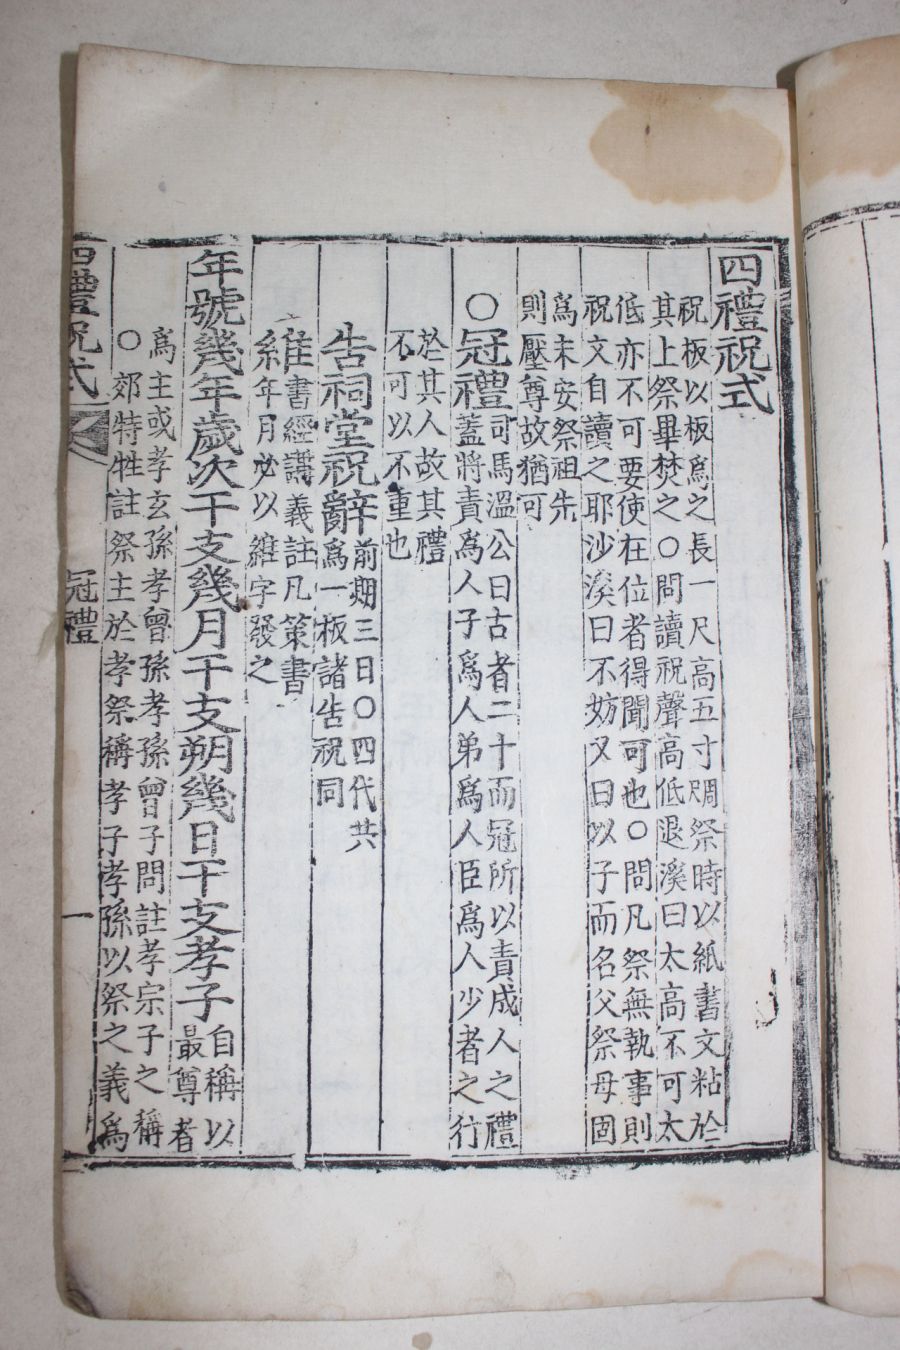 四禮祝式
祝板以板爲之長一尺高五寸周祭時以紙書文粘於
其上祭畢焚之○問讀祝聲高低退溪曰太高不可太
低亦不可要使在位者得聞可也○問凡祭無執事則
祝文自讀之耶沙溪曰不妨又曰以子而名父祭母固
爲未安祭祖先
則壓尊故猶可
○冠禮
司馬溫公曰古者二十而冠所以責成人之禮
蓋將責爲人子爲人弟爲人臣爲人少者之行
於其人故其禮
不可以不重也
告祠堂祝辭
前期三日○四代共
爲一板諸告祝同
維
書經講義註凡策書
年月必以維字發之
年號幾年歲次干支幾月干支朔幾日干支孝子
自稱以
最尊者
爲主或孝玄孫孝曾孫孝孫曾子問註孝宗子之稱
○郊特牲註祭主於孝祭稱孝子孝孫以祭之義爲
四禮祝式
冠禮
一